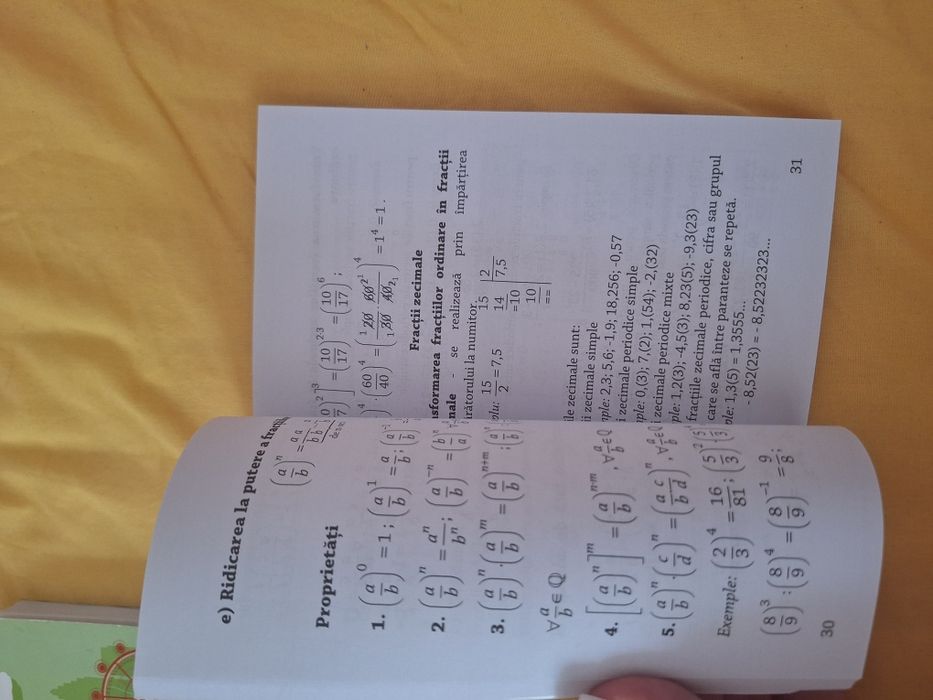 e) Ridicarea la putere a
(a/b)ⁿ = a/b a/b
Proprietăți
1. (a/b)⁰ = 1 ; (a/b)¹ = a/b ;
2. (a/b)ⁿ = aⁿ/bⁿ ; (a/b)⁻ⁿ =
3. (a/b)ⁿ · (a/b)ᵐ = (a/b)ⁿ⁺ᵐ ;
∀ a/b ∈ ℚ
4. [(a/b)ⁿ]ᵐ = (a/b)ⁿ·ᵐ , ∀ a/b ∈ ℚ
5. (a/b)ⁿ · (c/d)ⁿ = (a/b c/d)ⁿ , ∀ a/b ∈ ℚ
Exemple: (2/3)⁴ = 16/81 ; (5/3)²
(8/9)³ : (8/9)⁴ = (8/9)⁻¹ = 9/8 ;
30
= (10/17)²·³ = (10/17)⁶ ;
· (60/40)⁴ = (¹20/₁30 60²¹/40₂₁)⁴ = 1⁴ = 1 .
Fracții zecimale
sformarea fracțiilor ordinare în fracții
nale - se realizează prin împărțirea
rătorului la numitor.
olu: 15/2 = 7,5
15 | 2
14 | 7,5
=10
10
==
ile zecimale sunt:
i zecimale simple
ple: 2,3; 5,6; -1,9; 18,256; -0,57
i zecimale periodice simple
nple: 0,(3); 7,(2); 1,(54); -2,(32)
i zecimale periodice mixte
mple: 1,2(3); -4,5(3); 8,23(5); -9,3(23)
fracțiile zecimale periodice, cifra sau grupul
care se află între paranteze se repetă.
ple: 1,3(5) = 1,3555...
- 8,52(23) = - 8,52232323...
31